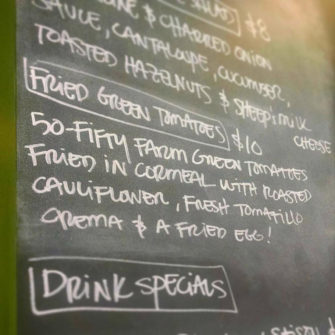 SALAD) $8
& CHARRED ONION
SAUCE, CANTALOUPE, CUCUMBER,
TOASTED HAZELNUTS & SHEEP'S MILK
CHEESE
FRIED GREEN TOMATOES $10
50-FIFTY FARM GREEN TOMATOES
FRIED IN CORMEAL WITH ROASTED
CAULIFLOWER, FRESH TOMATILLO
CREMA & A FRIED EGG!
DRINK SPECIALS